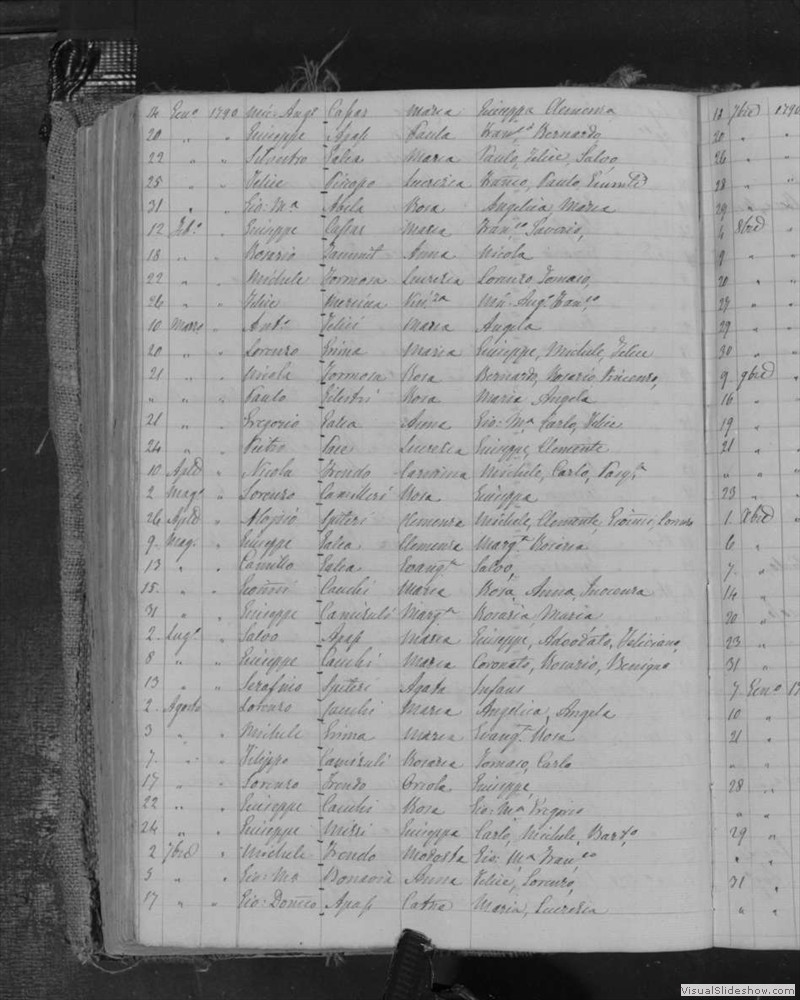 14 Genº 1790 Mic: Angº Caſsar Maria Giuseppa Clemensa
20 " " Giuseppe Apaſs Paula Franᶜᵒ Bernardo,
22 " " Silvestro Galea Maria Paulo, Felice, Salvo,
25 " " Felice Lucrezia Franco, Paulo,
31 " " Gio: Mª Abela Rosa Angelica Maria
12 Febº " Giuseppe Caſsar Maria Franᶜᵒ Saverio,
18 " " Rosario Zammit Anna Nicola
22 " " Michele Formosa Lucrezia Lorenzo, Tomaso,
26 " " Felice Mersina Vinᶻᵃ Mic: Angº Franᶜᵒ
10 Marzo " Antº Felici Maria Angela
20 " " Lorenzo Grima Maria Giuseppe, Michele, Felice
21 " " Nicola Formosa Rosa Bernardo, Rosario, Vincenzo,
" " " Paulo Silestri Rosa Maria Angela
21 " " Gregorio Galea Anna Gio: Mª Carlo, Felice
24 " " Pietro Pace Lucrezia Giuseppe, Clemente
10 Aplẽ " Nicola Frendo Carterina Michele, Carlo, Pasqˡᵉ
2 Magº " Lorenzo Camilleri Rosa Giuseppa
26 Aplẽ " Aloisio Spiteri Clemenza Michele, Clemente, Lorenzo
9 Magº " Giuseppe Galea Clemenza Margᵗᵃ Rosaria
13 " " Camillo Galea Evangᵗᵃ Salvo,
15 " " Gioanni Cauchi Maria Rosa, Anna, Vincenza
31 " " Giuseppe Camisuli Margᵗᵃ Rosaria Maria
2 Lugº " Salvo Apaſs Maria Giuseppe, Adeodato, Feliciano,
8 " " Giuseppe Cauchi Maria Coronato, Rosario, Benigno
13 " " Serafino Spiteri Agata Infans
2 Agosto " Lorenzo Cauchi Maria Angelica, Angela
3 " " Michele Grima Maria Evangᵗᵃ Rosa
7 " " Filippo Camisuli Rosaria Tomaso, Carlo
17 " " Lorenzo Frendo Orsola Giuseppe,
22 " " Giuseppe Cauchi Rosa Gio: Mª Gregorio
24 " " Giuseppe Mizzi Giuseppa Carlo, Michele, Bartº
2 7brẽ " Michele Frendo Modesta Gio: Mª Franᶜᵒ
5 " " Gio: Mª Bonavia Anna Felice, Lorenzo,
17 " " Gio: Domco Apaſs Catña Maria, Lucrezia
18 7brẽ 1790
20 " "
26 " "
28 " "
29 " "
4 8brẽ "
9 " "
20 " "
27 " "
29 " "
30 " "
9 9brẽ "
16 " "
19 " "
21 " "
" " "
23 " "
1 Xbrẽ "
6 "
7 "
14 "
20 "
23 "
31 "
7 Genº 17
10 "
21 "
" "
28 "
" "
29 "
" "
31 "
" "
VisualSlideshow.com